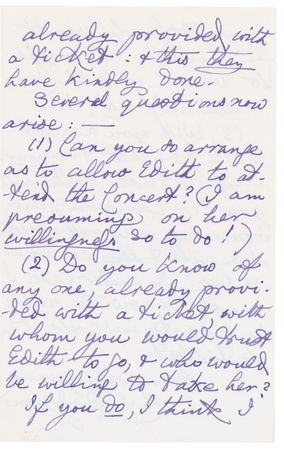 already provided with
a ticket: & this they
have kindly done.
Several questions now
arise: —
(1) Can you so arrange
as to allow Edith to at-
tend the Concert? (I am
presuming on her
willingness so to do!)
(2) Do you know of
any one already provi-
ded with a ticket with
whom you would trust
Edith to go, & who would
be willing to take her?
If you do, I think I